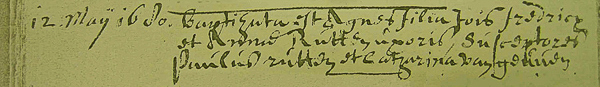 12. May 1680. baptizata est Agnes filia Jois fredricx
et Annæ Rutten uxoris, Susceptores
Paulus rutten et Catharina van